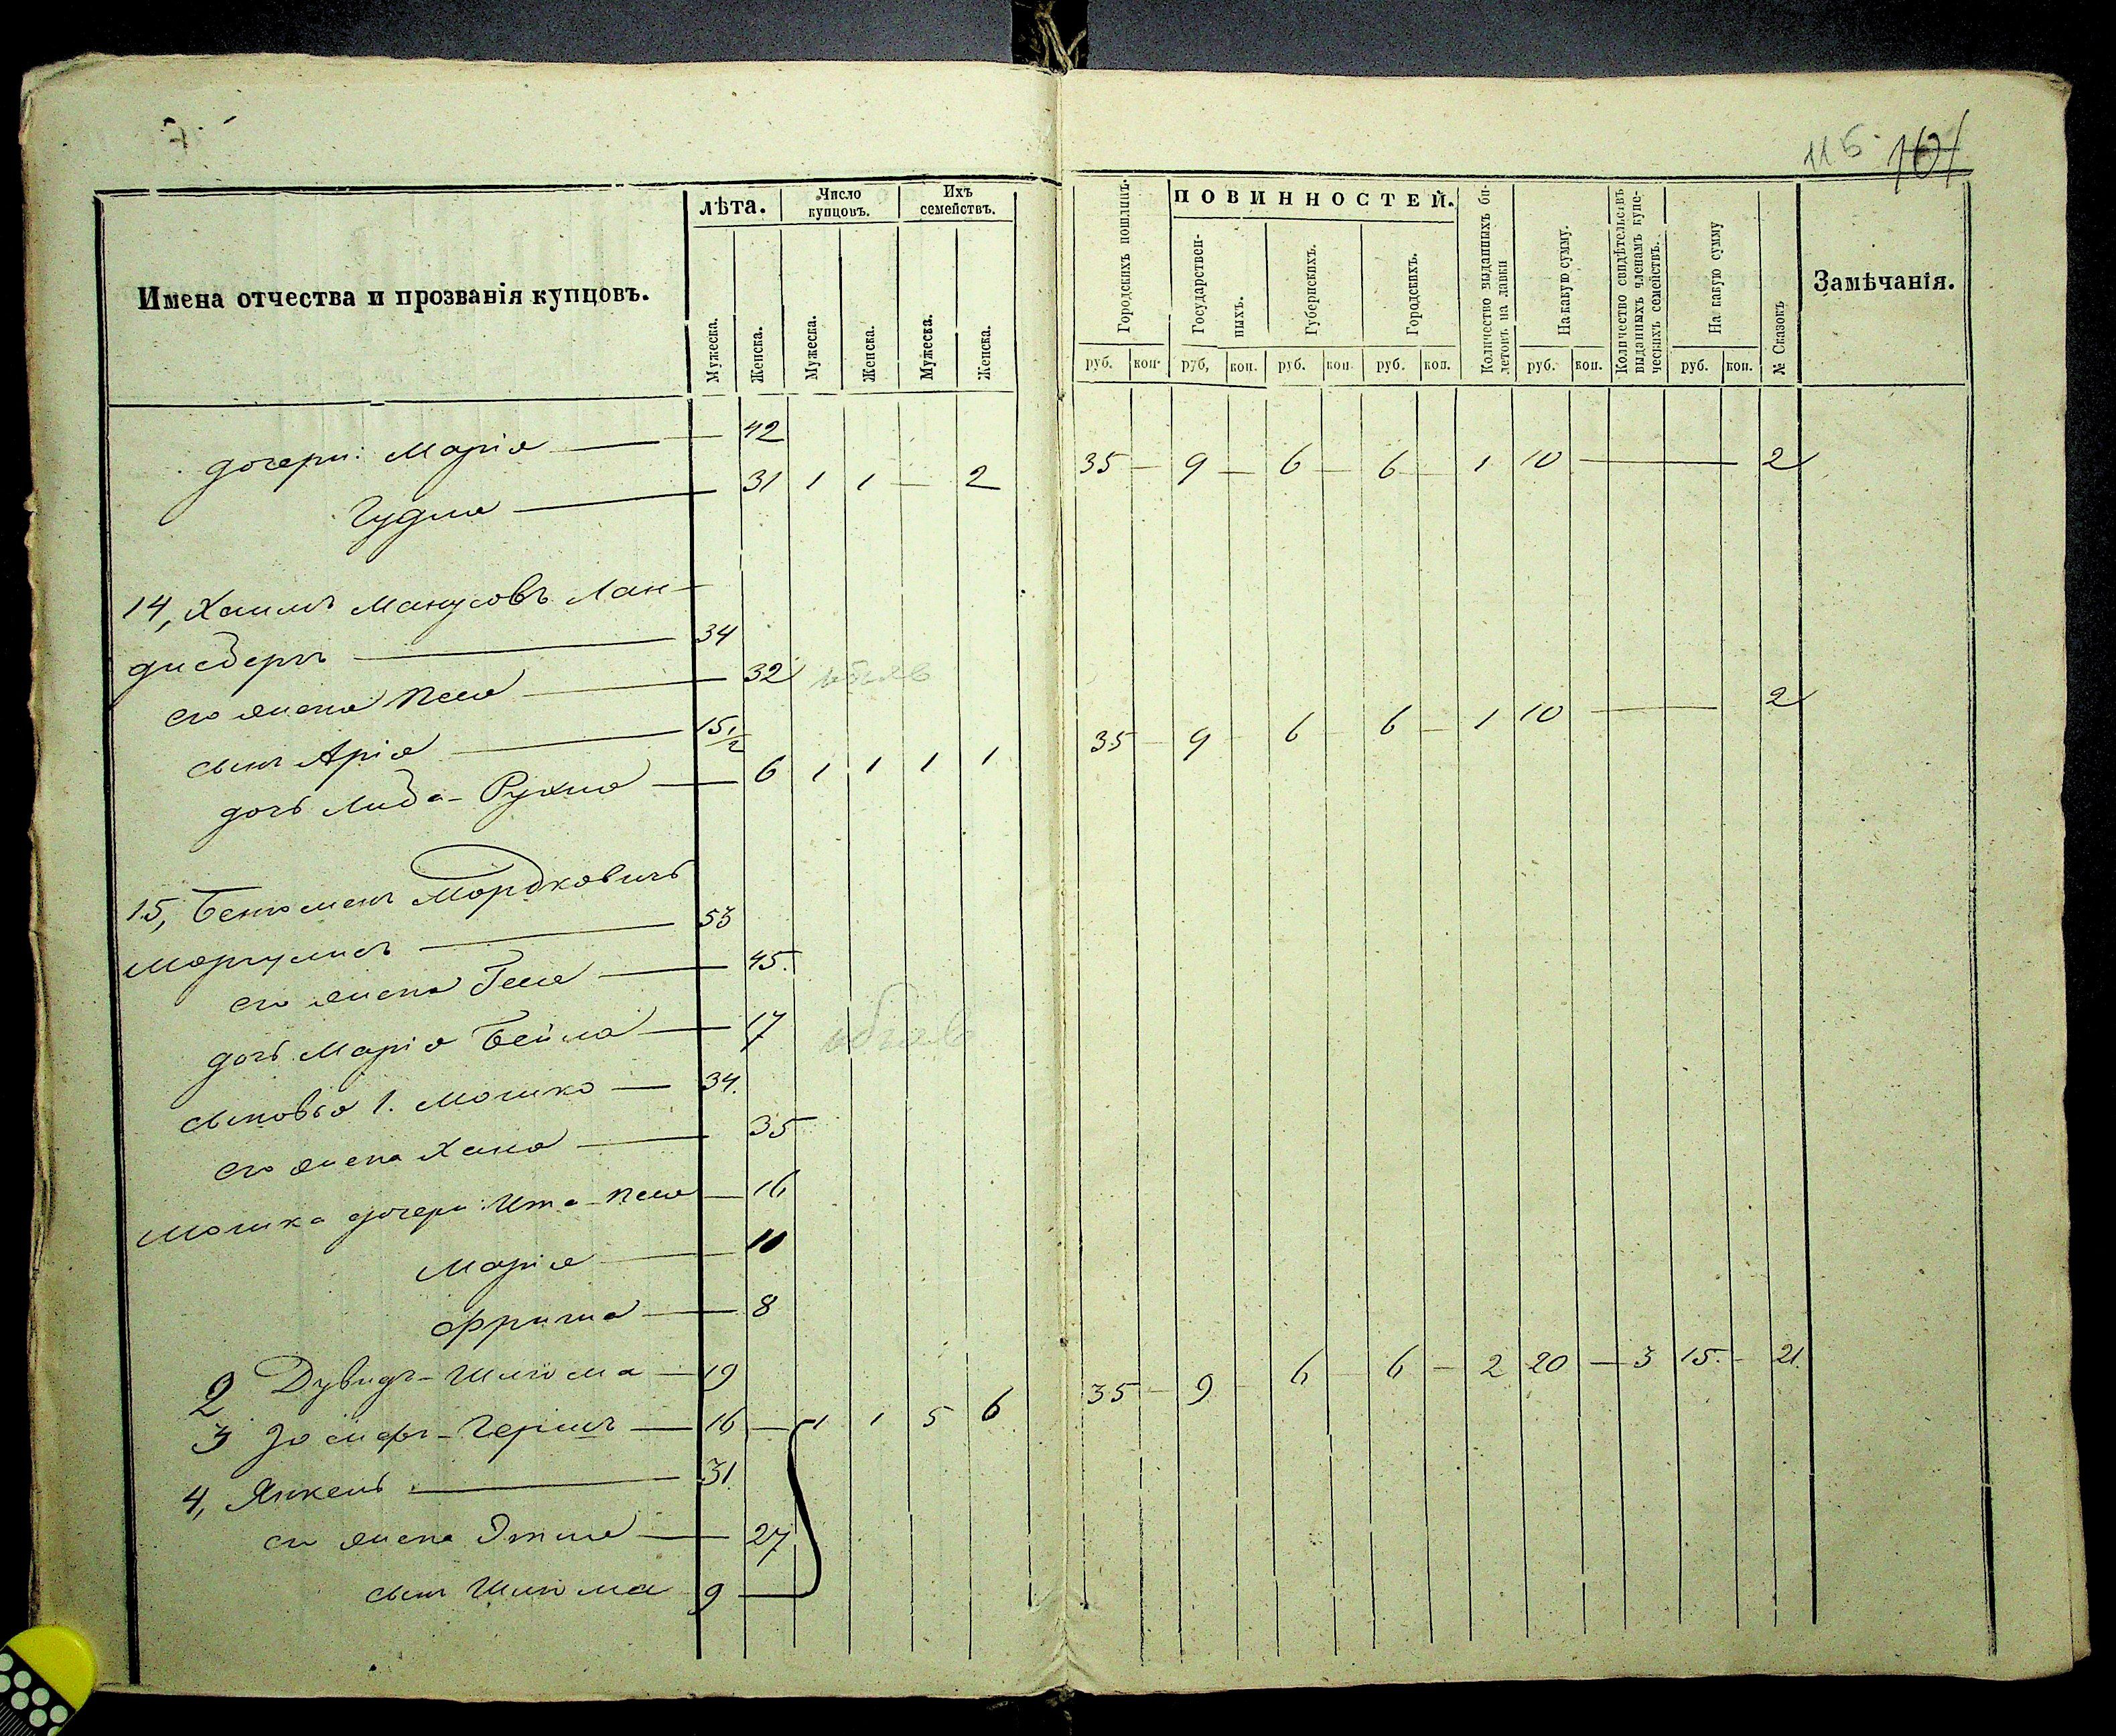 115 101
Имена отчества и прозванія купцовъ.
лѣта.
Число купцовъ.
Ихъ семействъ.
Мужеска.
Женска.
Мужеска.
Женска.
Мужеска.
Женска.
Городскихъ пошлинъ.
ПОВИННОСТЕЙ.
Государственныхъ.
Губернскихъ.
Городскихъ.
Количество выданныхъ билетовъ на лавки
На какую сумму.
Количество свидѣтельствъ выданныхъ членамъ купеческихъ семействъ.
На какую сумму
№ Сказокъ
Замѣчанія.
руб. коп. руб, коп. руб. коп. руб. коп. руб. коп. руб. коп.
дочери: Марія — 42
31 1 1 — 2 35 — 9 — 6 — 6 — 1 10 — 2
14, Хаимъ Манусовъ Лан-
34
его жена Песя — 32
сынъ Арія — 15 1/2
дочь Либа-Рухля — 6 1 1 1 1 35 — 9 — 6 — 6 — 1 10 — 2
15, Беньоменъ Мордковичъ
Моргулисъ — 53
его жена Геся — 45.
дочь Марія Бейла — 17
сыновья 1. Мошко — 34.
его жена Хана — 35
Мошка дочери: Ита-Песя — 16
Марія — 10
Фрима — 8
2 Дувидъ-Шлйома — 19
3 Іосифъ-Гершъ — 16 — 1 1 5 6 35 — 9 — 6 — 6 — 2 20 — 3 15. — 21.
4, Янкель — 31.
его жена Этля — 27
сынъ Шлйома 9 —